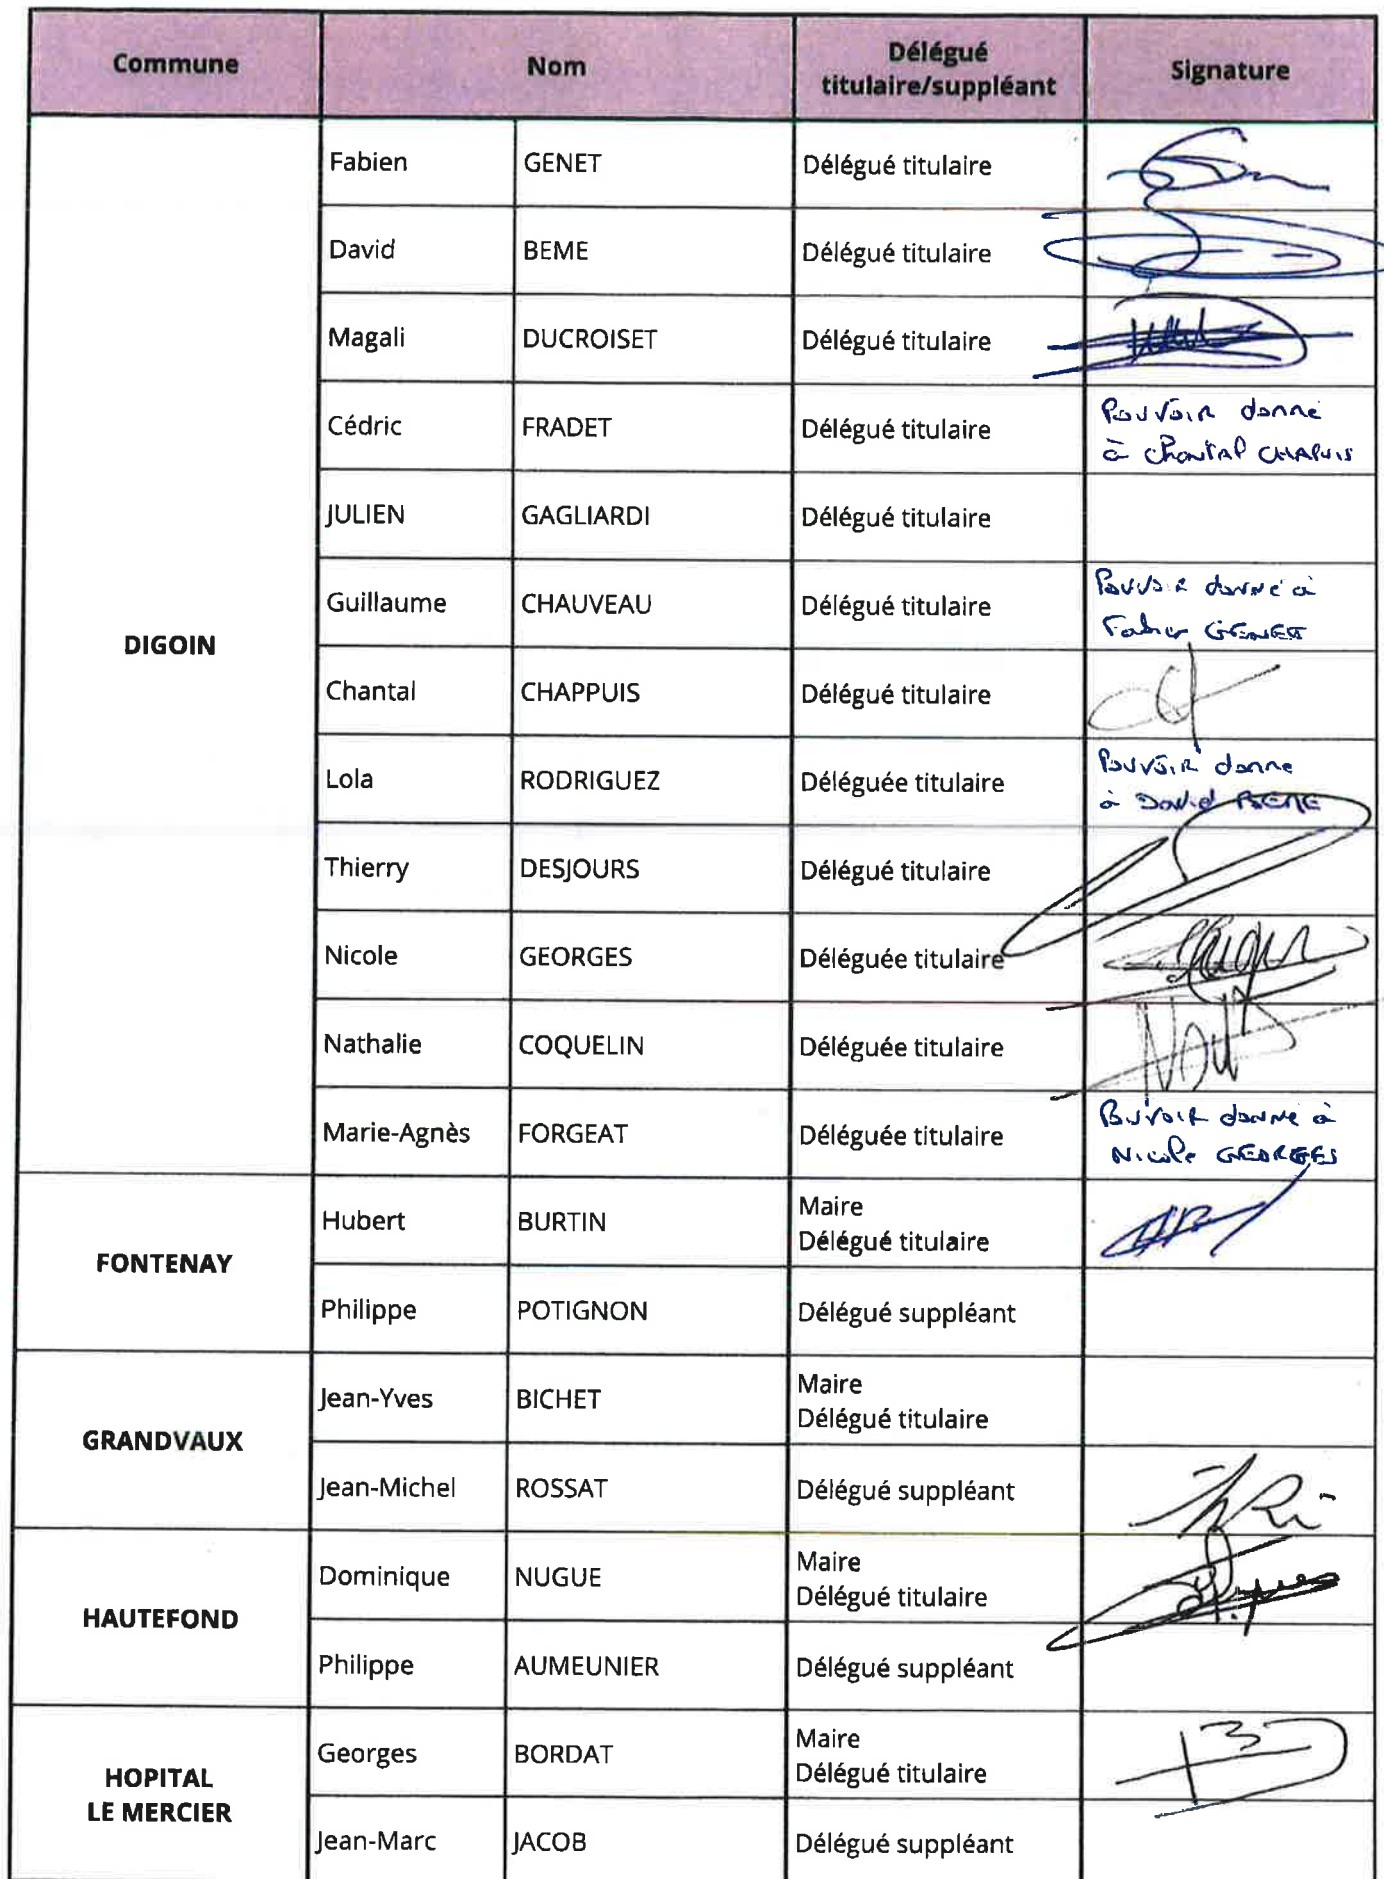 Commune Nom Délégué titulaire/suppléant Signature
DIGOIN
Fabien GENET Délégué titulaire
David BEME Délégué titulaire
Magali DUCROISET Délégué titulaire
Cédric FRADET Délégué titulaire Pouvoir donné
à Chantal CHAPUIS
JULIEN GAGLIARDI Délégué titulaire
Guillaume CHAUVEAU Délégué titulaire Pouvoir donné à
Fabien GENET
Chantal CHAPPUIS Délégué titulaire
Lola RODRIGUEZ Déléguée titulaire Pouvoir donne
à David BEME
Thierry DESJOURS Délégué titulaire
Nicole GEORGES Déléguée titulaire
Nathalie COQUELIN Déléguée titulaire
Marie-Agnès FORGEAT Déléguée titulaire Pouvoir donné à
Nicole GEORGES
FONTENAY
Hubert BURTIN Maire
Délégué titulaire
Philippe POTIGNON Délégué suppléant
GRANDVAUX
Jean-Yves BICHET Maire
Délégué titulaire
Jean-Michel ROSSAT Délégué suppléant
HAUTEFOND
Dominique NUGUE Maire
Délégué titulaire
Philippe AUMEUNIER Délégué suppléant
HOPITAL
LE MERCIER
Georges BORDAT Maire
Délégué titulaire
Jean-Marc JACOB Délégué suppléant